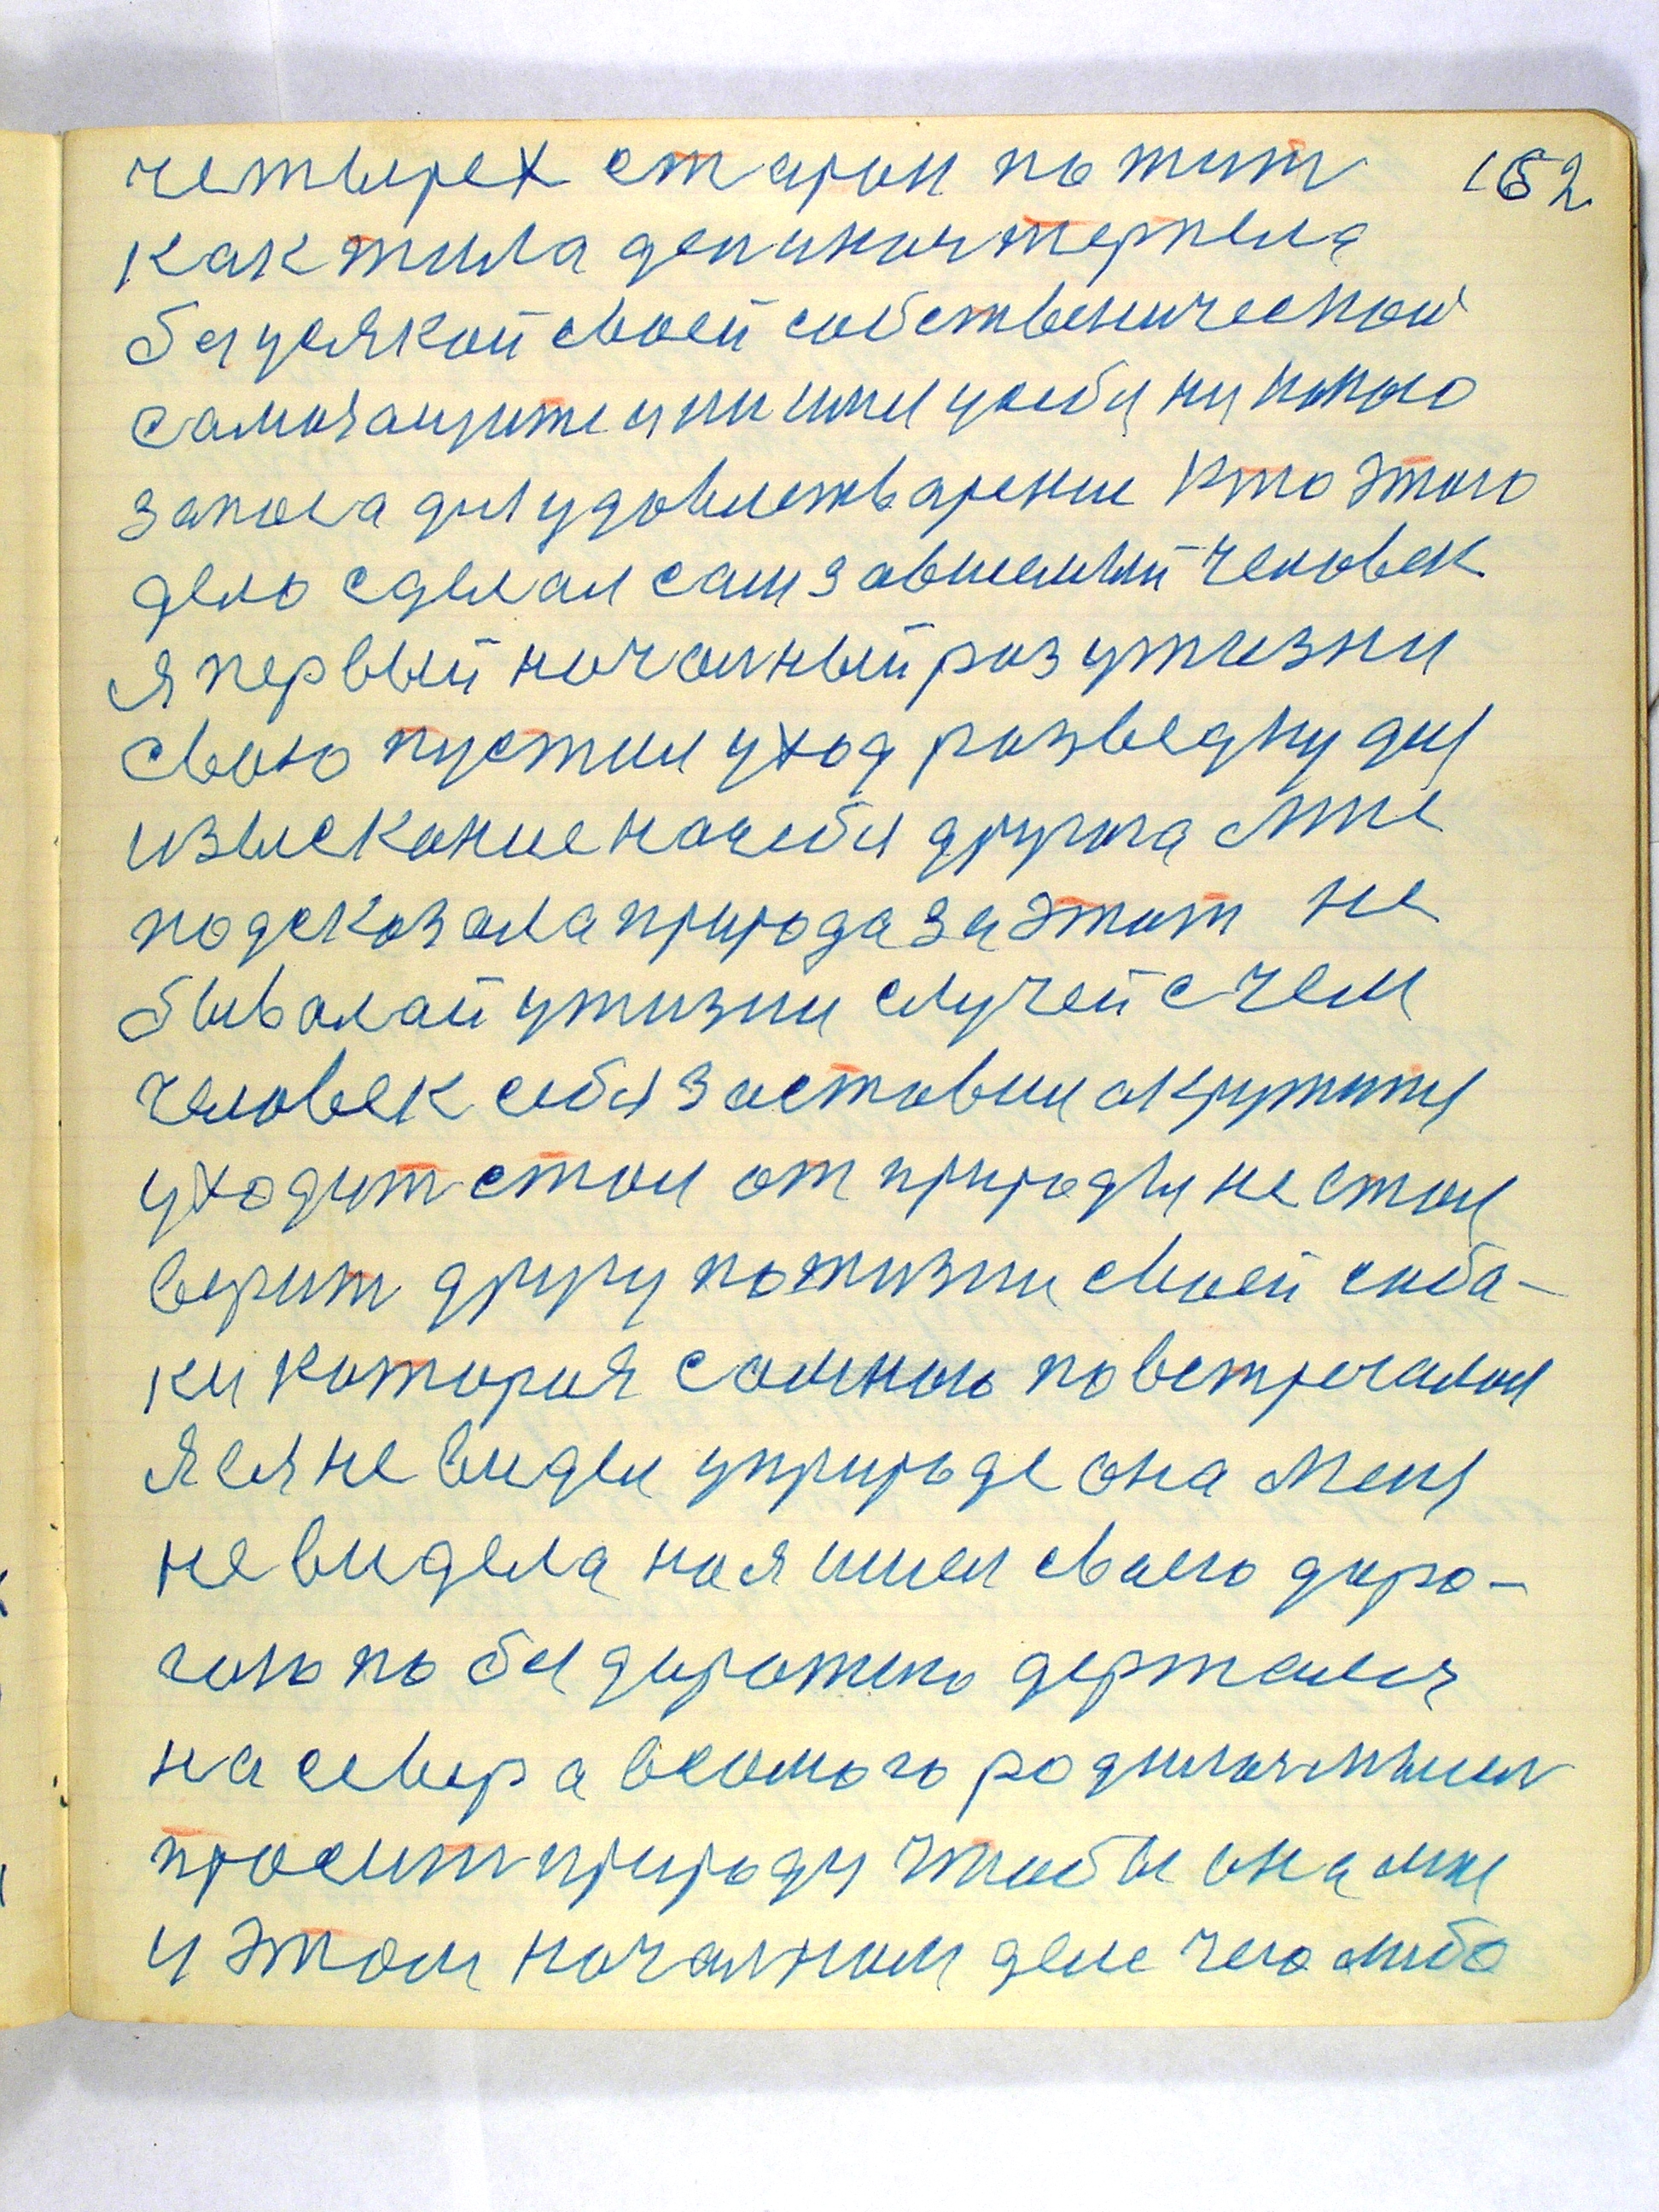 четырех старон по жит 152
как жила дели
безусякой своей собственической
самозащите и ни имел усебя ни
запоса для удовлетварение Кто этого
дело сделал сам зависемый человек
я первый начальный раз ужизни
свою пустил уход разведку для
изыскание насебя друга Мне
подсказала природа за этот не
бывалай ужизни случей с чем
человек себя заставил
уходит стал от природы не стал
верит другу по жизни своей соба-
ки которая самною повстречалась
Я ея не видел уприроде она Меня
не видела но я имел своего доро-
гою по бездорожию держался
на север а всамого родилась мысл
просит природу чтобы она мне
у этом начальном деле чего либо